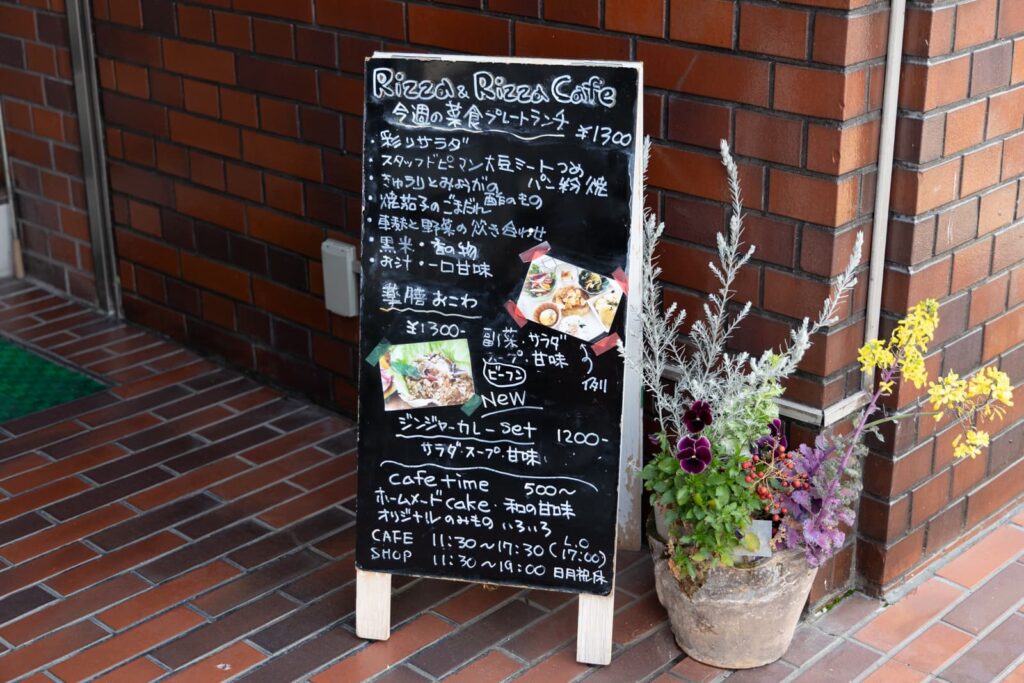 Rizza & Rizza Cafe
今週の菜食プレートランチ ¥1300
・彩りサラダ
・スタッフドピーマン大豆ミートつめ
パン粉焼
・きゅうりとみょうがの
酢のもの
・焼茄子のごまだれ
車麩と野菜の炊き合わせ
・黒米・香の物
・お汁・一口甘味
薬膳おこわ
¥1300-
副菜・サラダ
スープ・甘味
ビーフン
一例
NEW
ジンジャーカレーset 1200-
サラダ・スープ・甘味
cafe time 500〜
ホームメードcake・和の甘味
オリジナルのみもの いろいろ
CAFE 11:30〜17:30 (L.O 17:00)
SHOP 11:30〜19:00 日月祝休